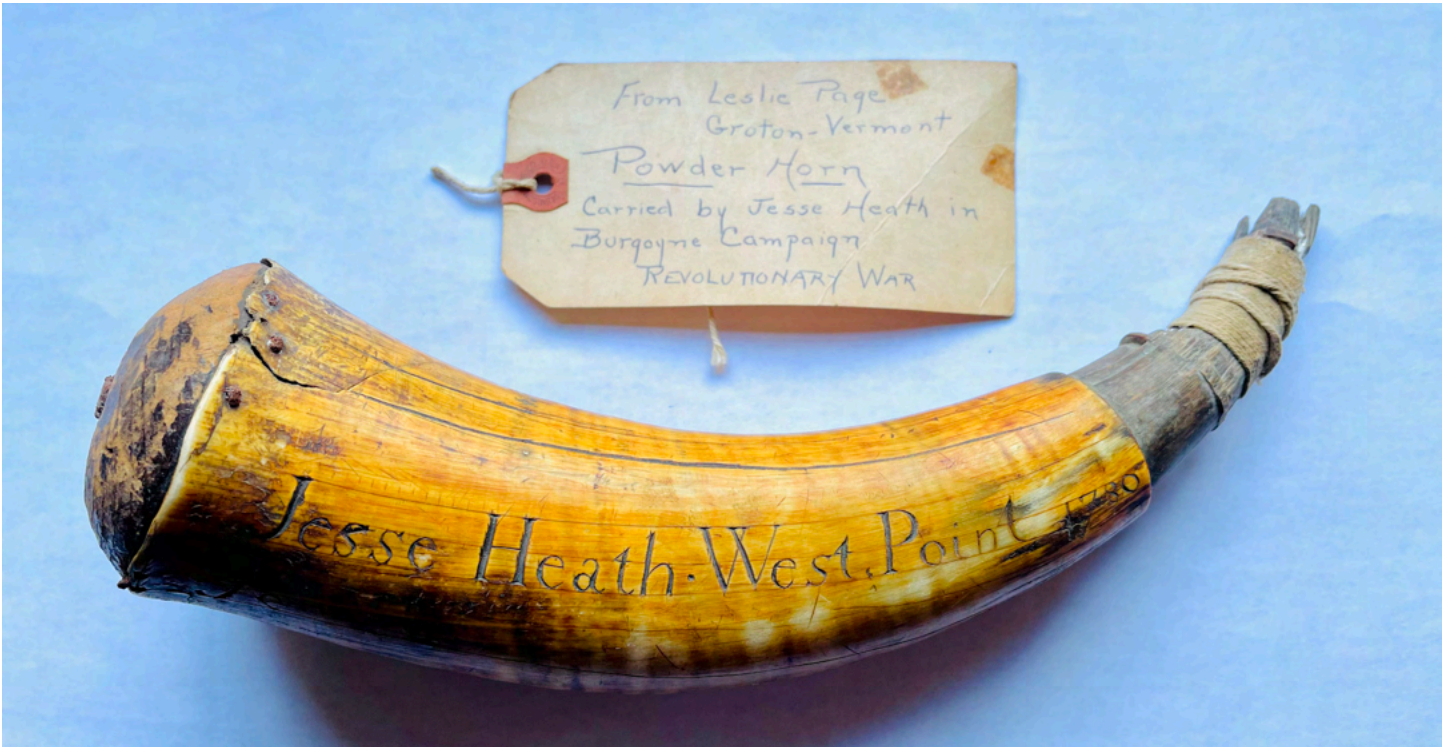 From Leslie Page
Groton-Vermont
Powder Horn
Carried by Jesse Heath in
Burgoyne Campaign
REVOLUTIONARY WAR
Jesse Heath·West Point 1780